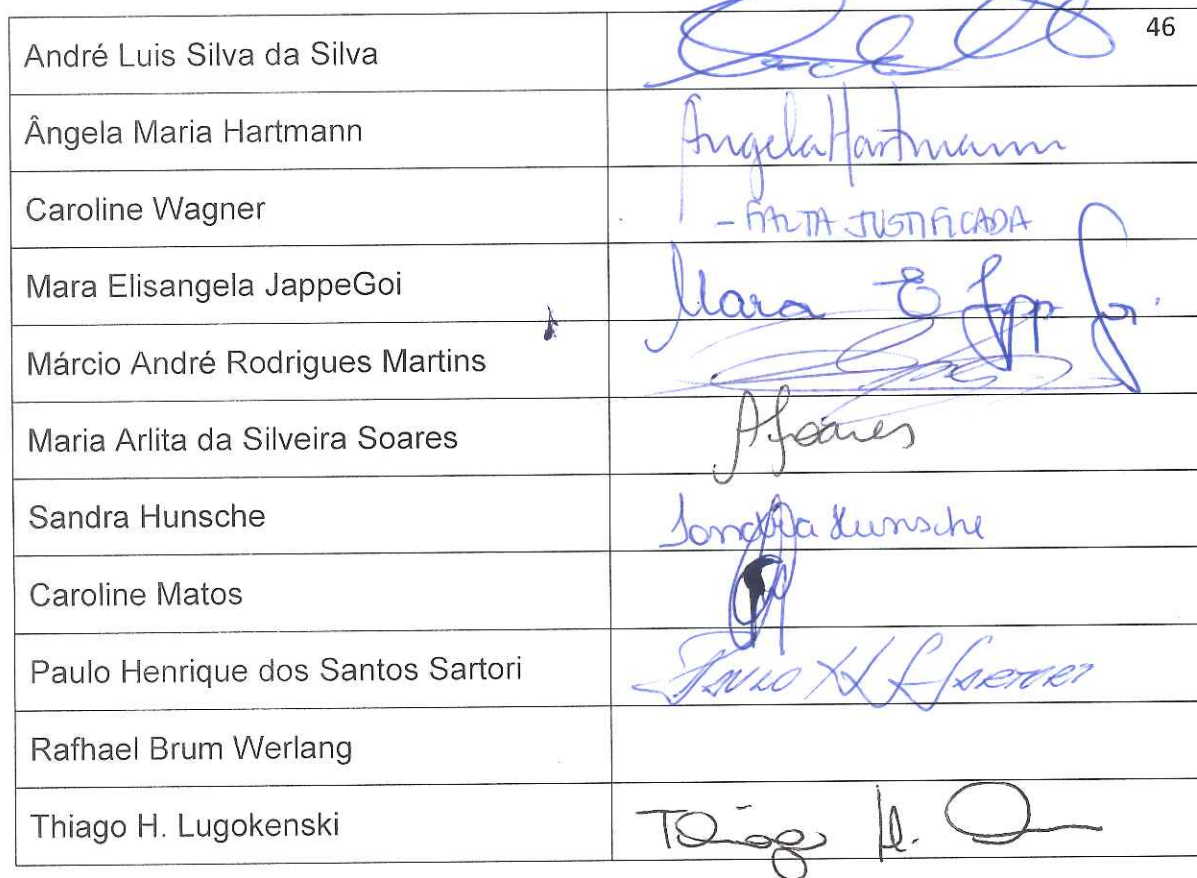 46
André Luis Silva da Silva
Ângela Maria Hartmann Angela Hartmann
Caroline Wagner - FALTA JUSTIFICADA
Mara Elisangela JappeGoi Mara E Japp Goi
Márcio André Rodrigues Martins
Maria Arlita da Silveira Soares ASoares
Sandra Hunsche Sandra Hunsche
Caroline Matos
Paulo Henrique dos Santos Sartori Paulo H S Sartori
Rafhael Brum Werlang
Thiago H. Lugokenski Thiago H.